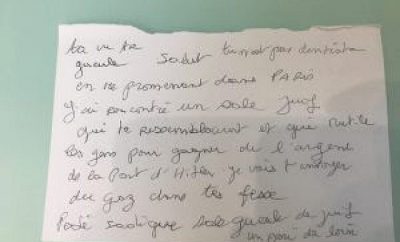 ta vu ta
gueule salut tu pas dentiste
en me promenant dans PARIS
J'ai rencontré un sale juif
qui te et qui mutile
les gens pour gagner de l'argent
de la Part d'Hitler je vais t'envoyer
du gaz dans tes fesse
Pédé sadique sale gueule de juif
un de loin